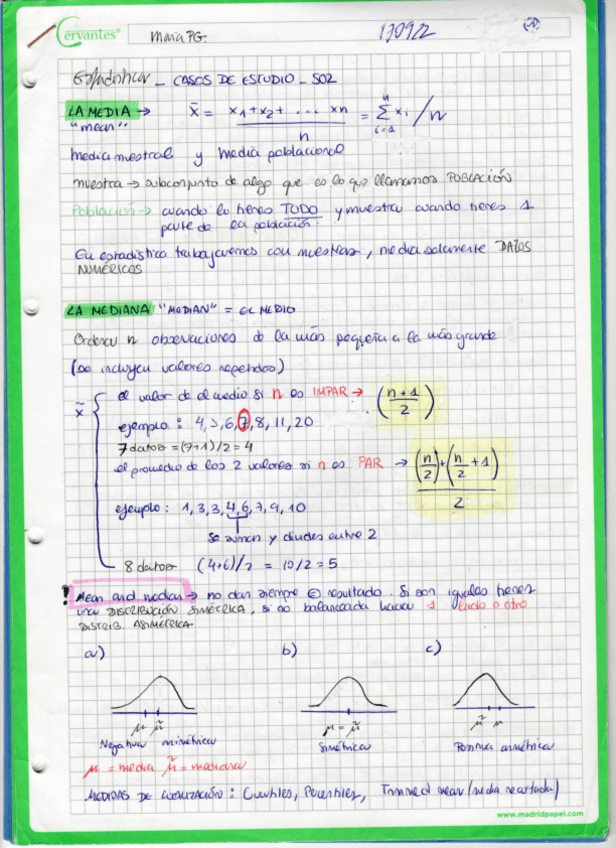 Cervantes® Maria PG. 170922
Estadistica - CASOS DE ESTUDIO - S02
LA MEDIA → x̄ = x1+x2+ ... xn / n = Σ i=1 n xi / n
"mean"
Media muestral y Media poblacional
muestra → subconjunto de algo que es lo que llamamos POBLACIÓN
Población → cuando lo tienes TODO y muestra cuando tienes 1
parte de la población.
En estadística trabajaremos con muestras, media solamente DATOS
NUMÉRICOS
LA MEDIANA "MEDIAN" = EL MEDIO
Ordenar n observaciones de la más pequeña a la más grande
(se incluyen valores repetidos)
x̃ { el valor de el medio si n es IMPAR → (n+1 / 2)
ejemplo: 4, 5, 6, 7, 8, 11, 20
7 datos = (7+1)/2 = 4
el promedio de los 2 valores si n es PAR → (n/2)+(n/2 + 1) / 2
ejemplo: 1, 3, 3, 4, 6, 7, 9, 10
se suman y divides entre 2
8 datos (4+6)/2 = 10/2 = 5
! Mean and median → no dan siempre = resultado. Si son iguales tienes
una DISTRIBUCIÓN SIMÉTRICA, si no balanceada hacia 1 lado o otro
DISTRIB. ASIMÉTRICA
a) b) c)
μ μ̃ μ = μ̃ μ̃ μ
Negativa asimétrica Simétrica Positiva asimétrica
μ = media μ̃ = mediana
MEDIDAS DE LOCALIZACIÓN: Cuartiles, Percentiles, Trimmed mean (media recortada)
www.madridpapel.com